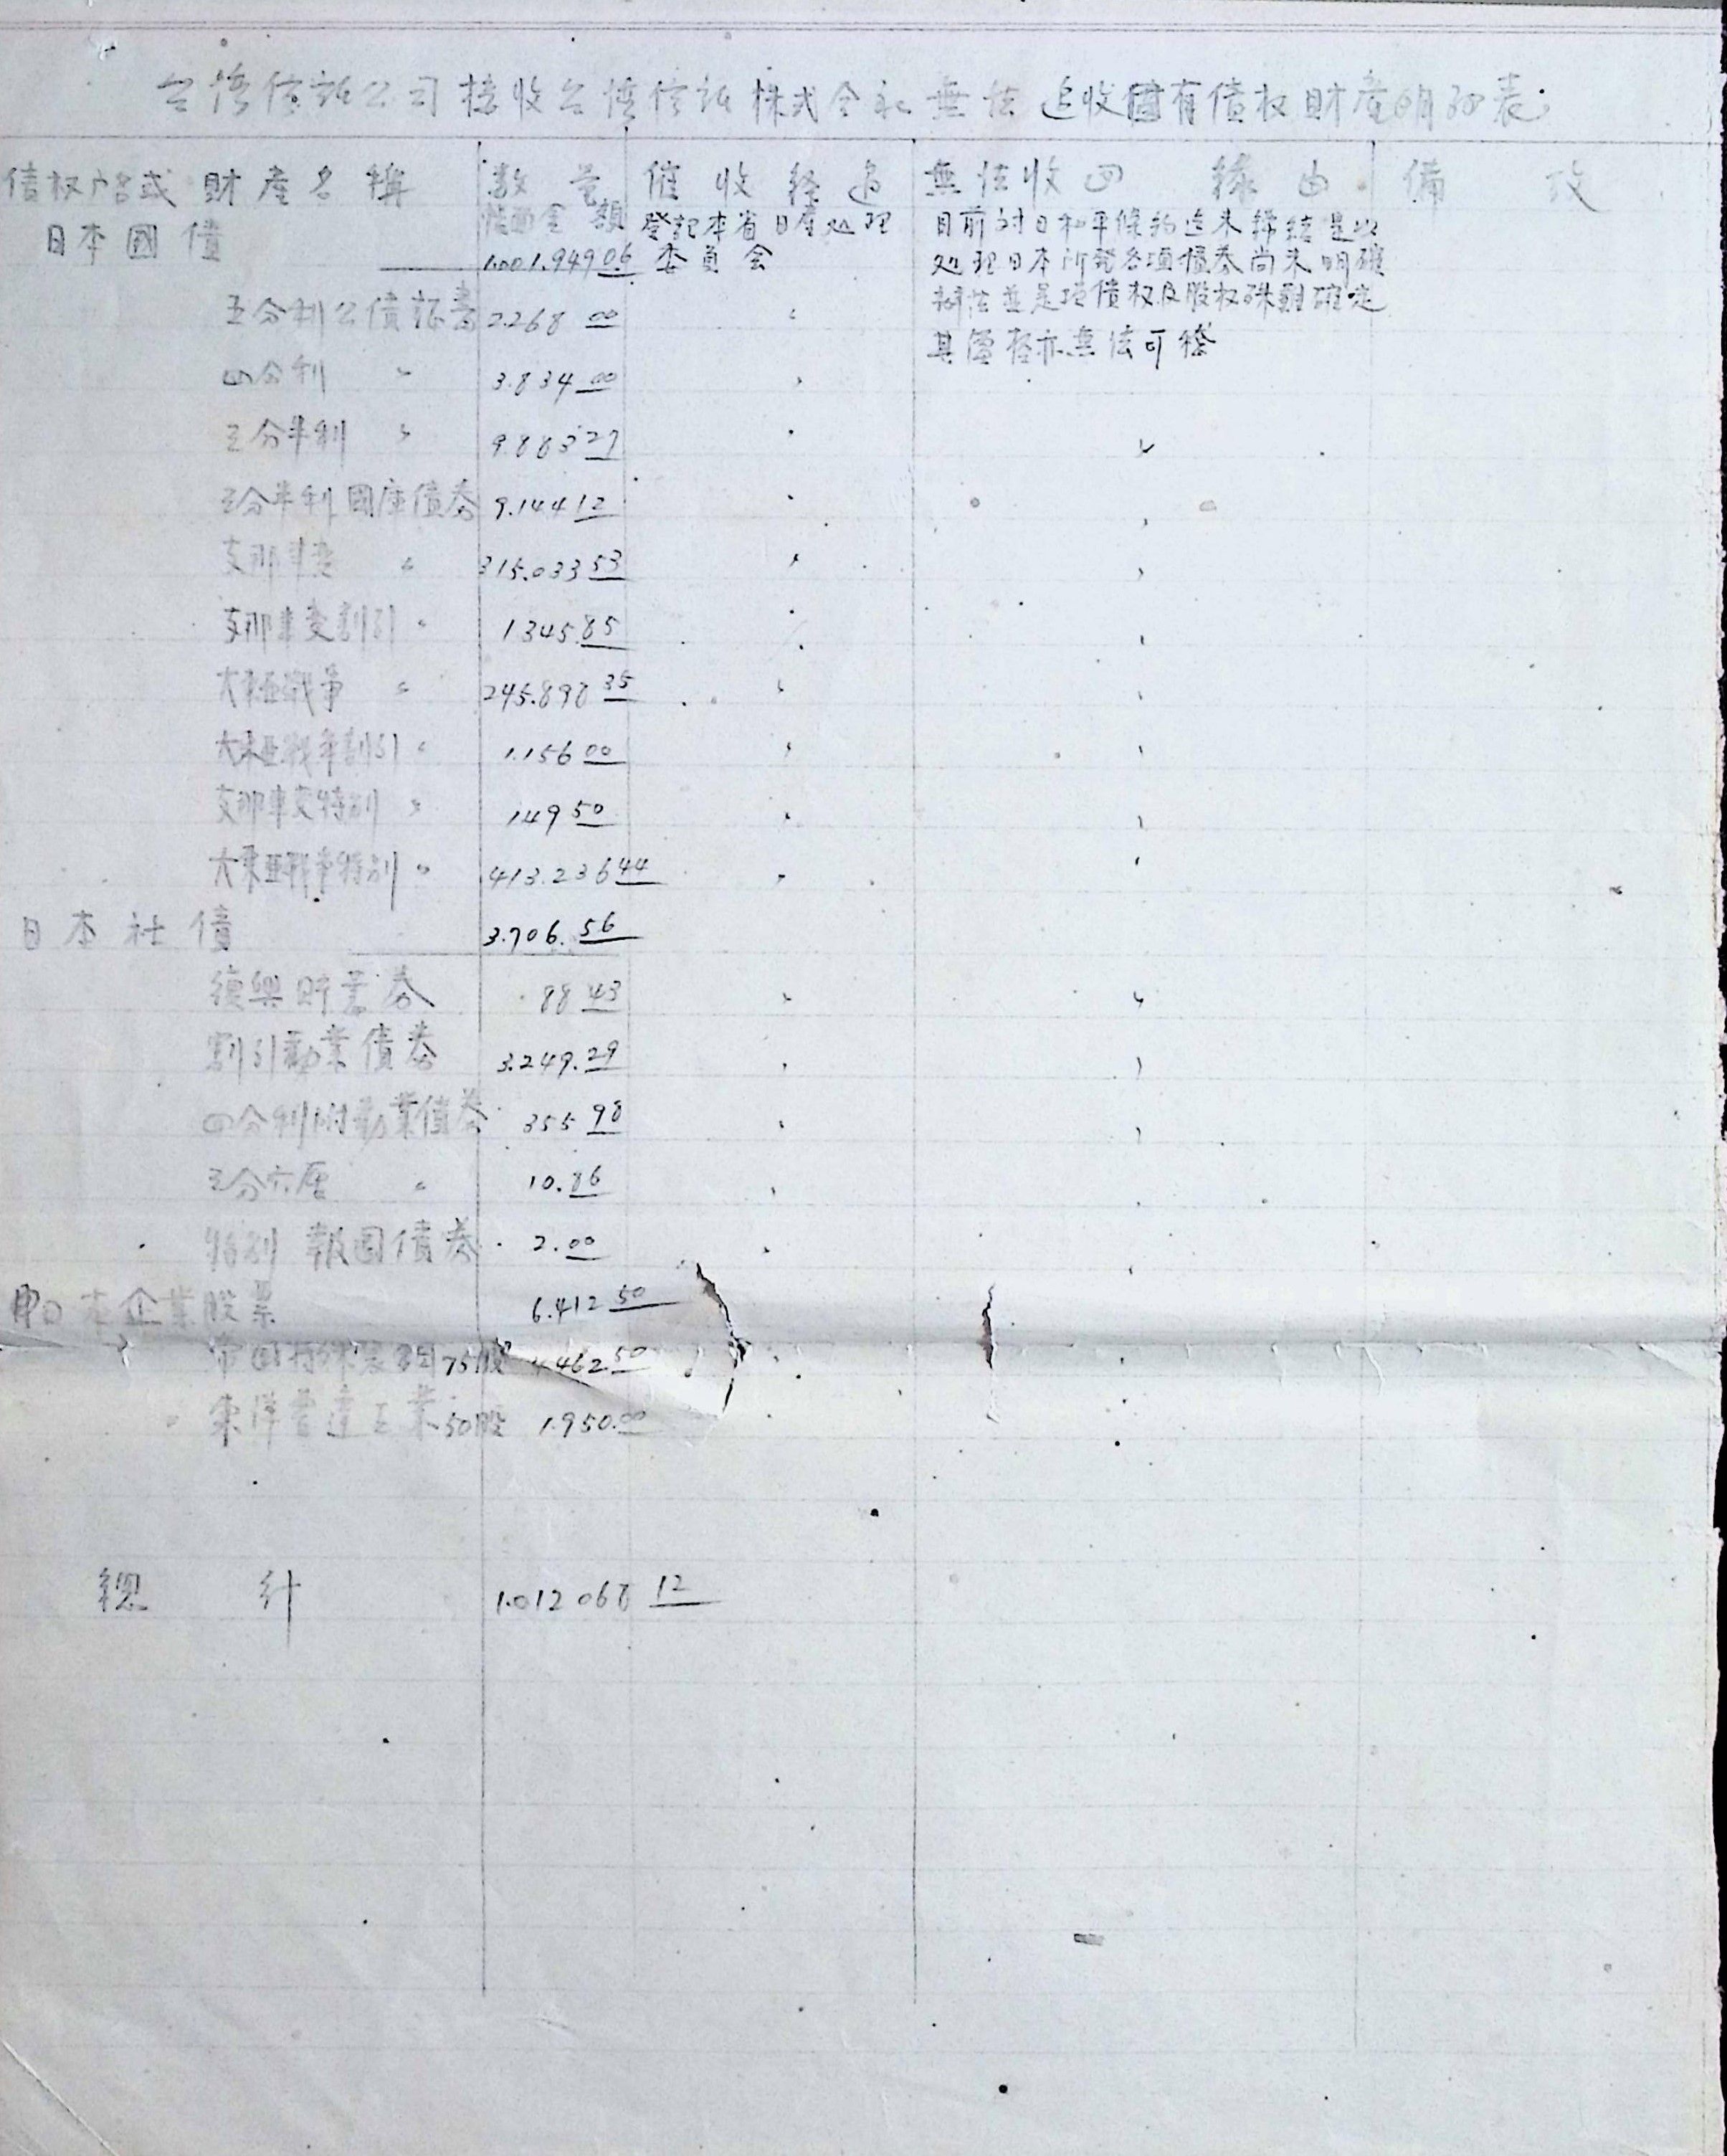 台湾信託公司接收台湾信託株式会社無法追收國有債权財產明細表
債权户名或財產名稱 數量 催收経過 無法收回緣由 備攷
日本國債 票面金額 登記本省日產処理 目前対日和平條約迄未締結是以
1.001.949 06 委員会 処理日本所発各項債券尚未明確
五分利公債証書 2.268 00 〃 辦法並是項債权及股权殊難確定
其價格亦無法可稽
四分利 〃 3.834 00 〃
三分半利 〃 9.883 27 〃 〃
三分半利國庫債券 9.144 12 〃 〃
支那事変 〃 315.033 53 〃 〃
支那事変割引 〃 1345.85 〃 〃
大東亜戦争 〃 245.898 35 〃 〃
大東亜戦争割引 〃 1.156 00 〃 〃
支那事変特別 〃 149 50 〃 〃
大東亜戦争特別 〃 413.236 44 〃 〃
日本社債 3.706.56
復興貯蓄券 88 43 〃 〃
割引勧業債券 3.249.29 〃 〃
四分利附勧業債券 355 98 〃 〃
三分六厘 〃 10.86 〃 〃
特別報國債券 2.00 〃 〃
日本企業股票 6.412 50
帝國特殊製鋼 75股 4.462 50 〃 〃
東洋営造工業 50股 1.950.00 〃 〃
總計 1.012 068 12